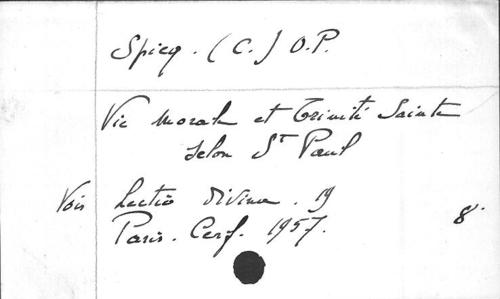 Spicq. (C.) O.P.
Vie Morale et Trinité Sainte
selon St Paul
Vois Lectio divina. 19
Paris. Cerf. 1957. 8°